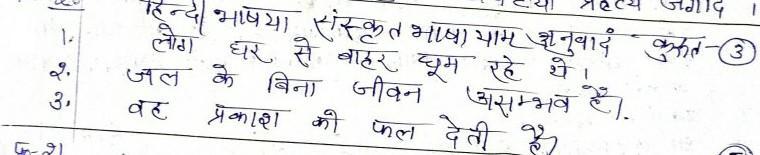 हिन्दी भाषया संस्कृत भाषायाम अनुवादं कुरूत- ③
1. लोग घर से बाहर घूम रहे थे।
२. जल के बिना जीवन असम्भव है।
3. वह प्रकाश को फल देती है।